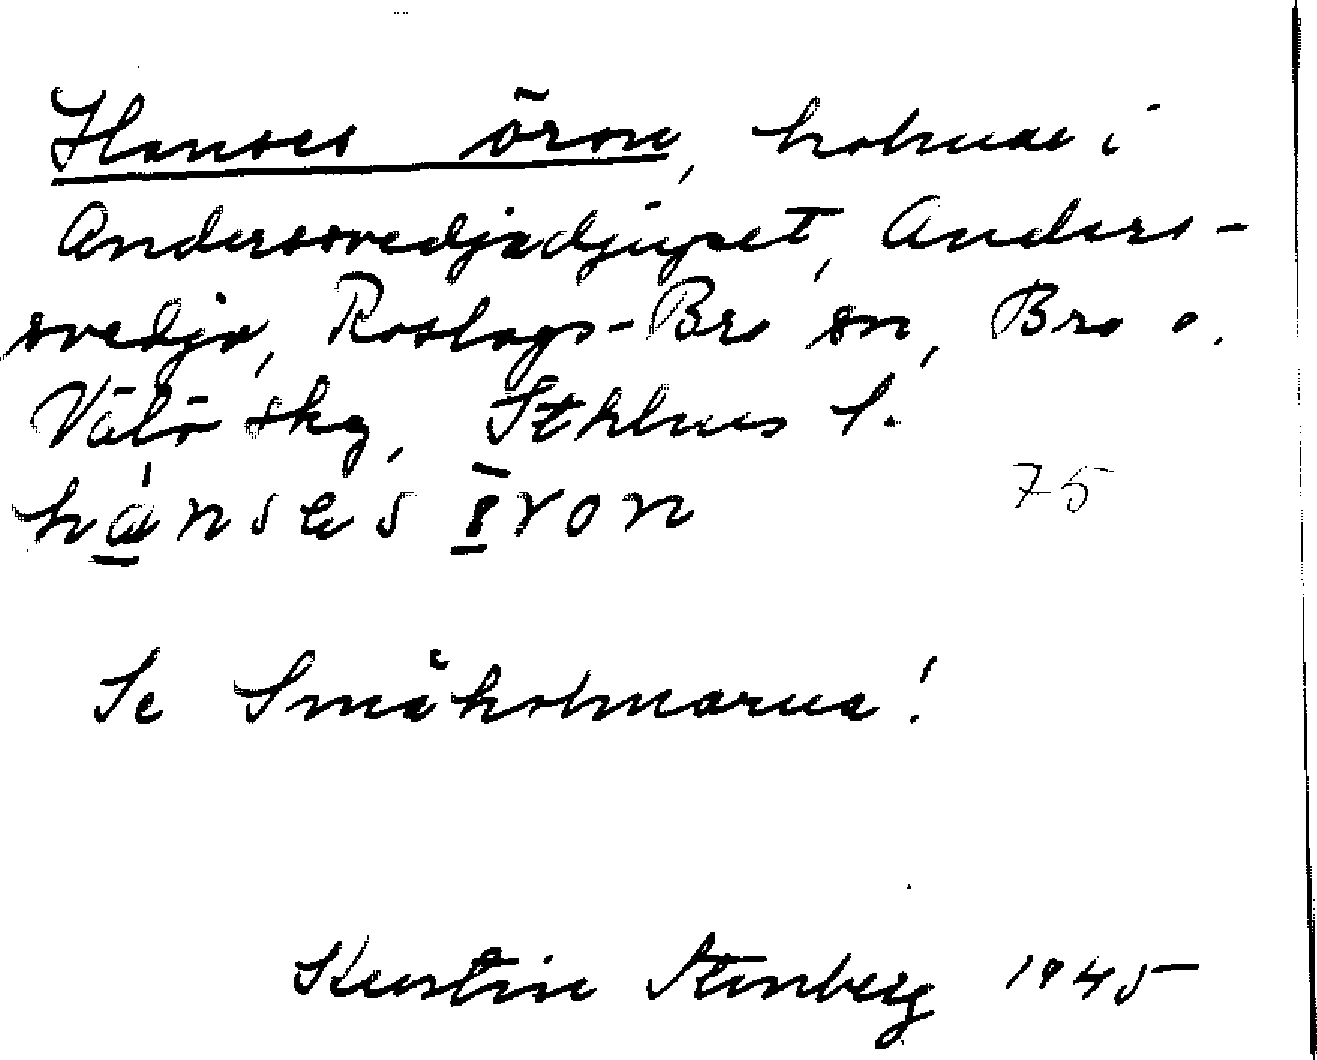 Hanses öron, holmar i
Anderssvedjadjupet, Anders-
svedja, Roslags-Bro sn, Bro o.
Vätö skg, Sthlms l.
hanses öron 75
Se Småholmarna!
Kerstin Stenberg 1945